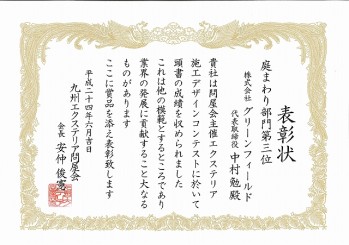 表彰状
庭まわり部門第三位
株式会社 グリーンフィールド
代表取締役 中村勉殿
貴社は問屋会主催エクステリア
施工デザインコンテストに於いて
頭書の成績を収められました
これは他の模範とするところであり
業界の発展に貢献すること大なる
ものがあります
ここに賞品を添え表彰致します
平成二十四年六月吉日
九州エクステリア問屋会
会長 安仲俊憲